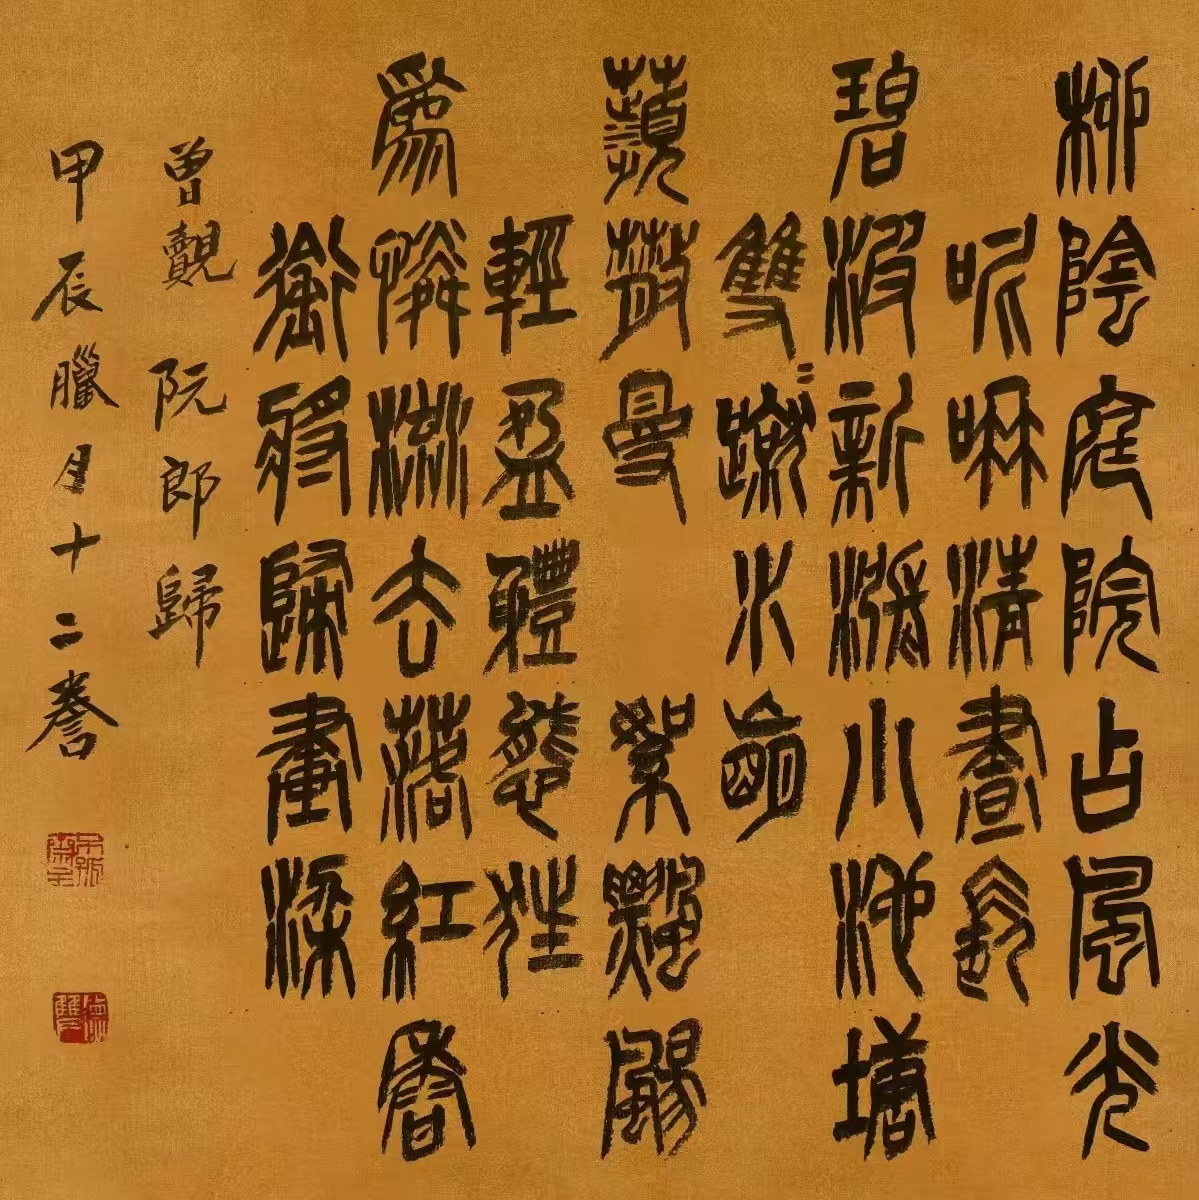 柳陰庭院占風光
呢喃清晝長
碧波新漲小池塘
雙〻蹴水
蘋散曼 絮飄颺
輕盈體態狂
為憐流去落紅香
銜將歸畫梁
曾覿 阮郎歸
甲辰臘月十二誊